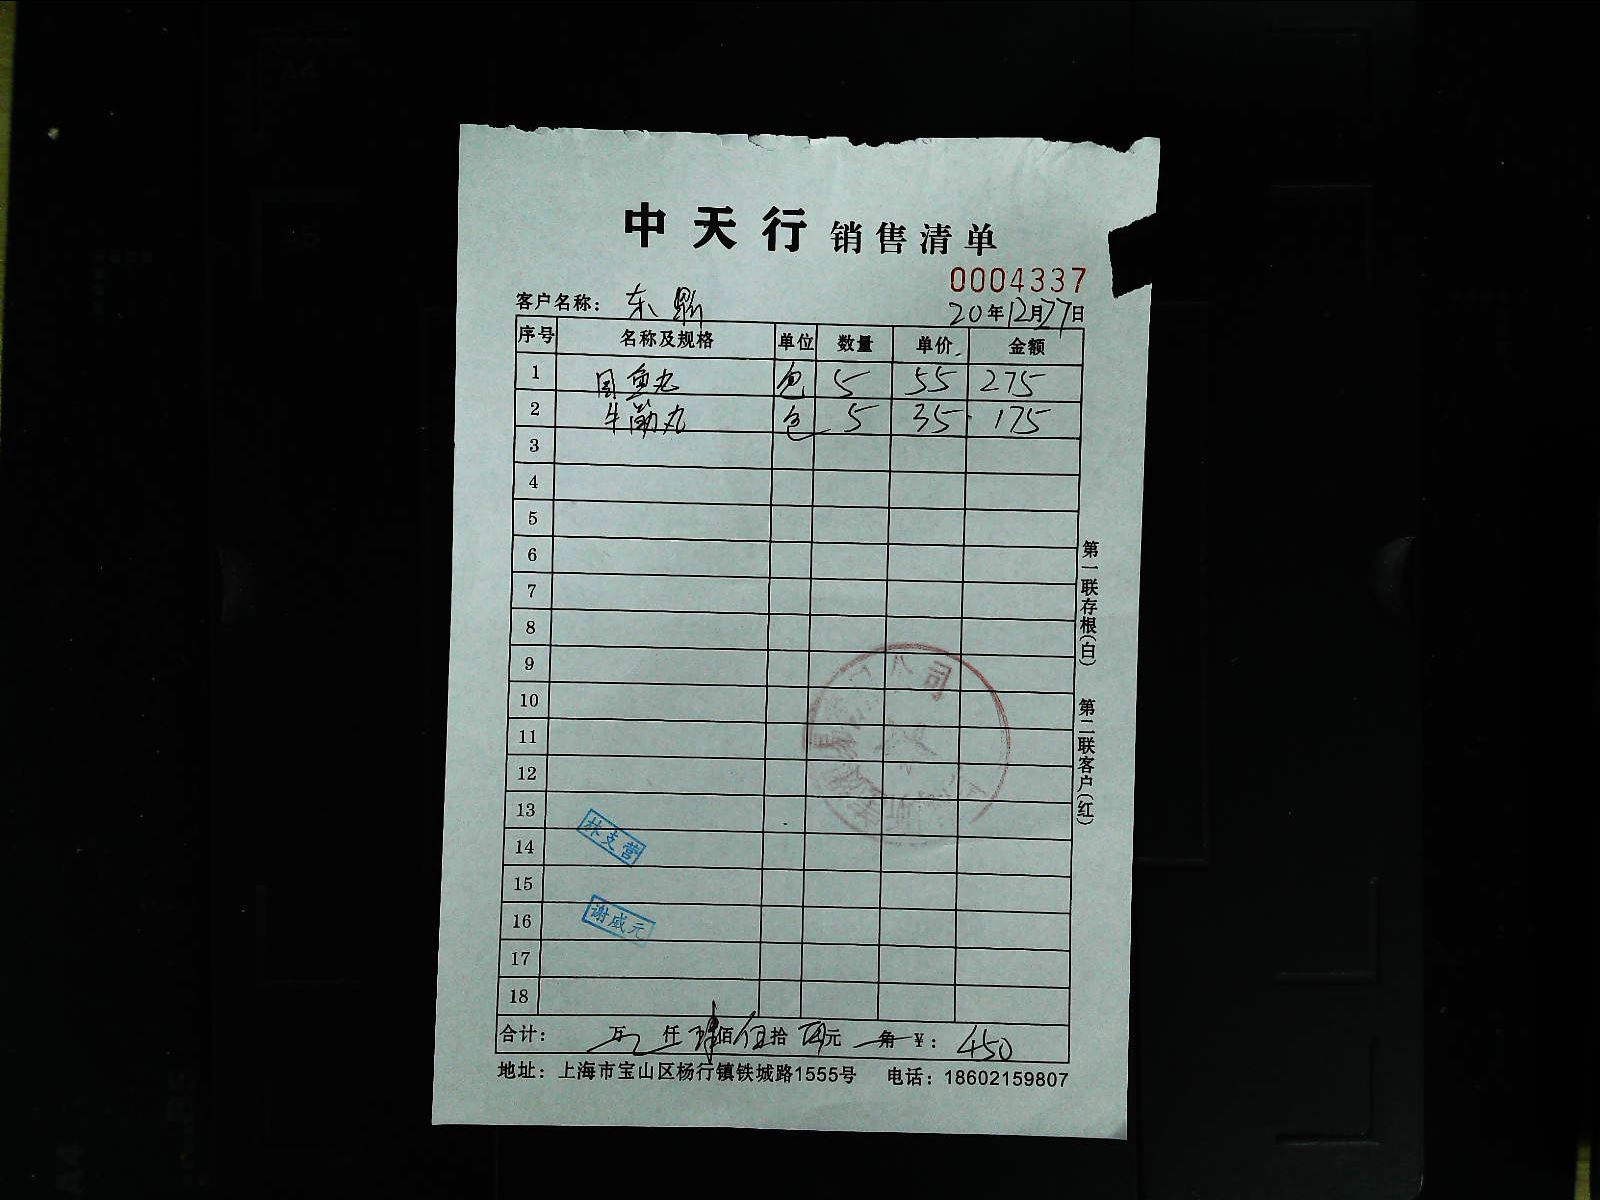 中天行 销售清单
0004337
客户名称： 东
20年12月27日
序号 名称及规格 单位 数量 单价 金额
1 鱼丸 包 5 55 275
2 牛筋丸 包 5 35 175
3
4
5
6
7
8
9
10
11
12
13
14
15
16
17
18
公司
林支营
谢咸元
合计： 万 仟 肆佰伍拾 元 角 ¥： 450
地址：上海市宝山区杨行镇铁城路1555号 电话：18602159807
第一联存根(白) 第二联客户(红)